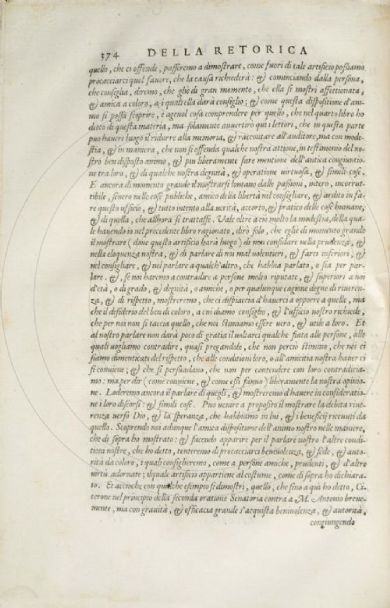 374 DELLA RETORICA
quello, che ci offende, passeremo a dimostrare, come fuori di tale artificio possiamo
procacciarci quel favore, che la causa richiederà: & cominciando dalla persona,
che consiglia, diremo, che gliè di gran momento, che ella si mostri affettionata,
& amica a coloro, a i quali ella darà consiglio; & come questa dispositione d'ani-
mo si possa scoprire, è ageuol cosa comprendere per quello, che nel quarto libro ho
detto di questa materia, ma solamente auuertirò quì i lettori, che in questa parte
può hauere luogo il ridurre alla memoria, & raccontare all'auditore, ma con mode-
stia, & in maniera, che non si offenda, qualche nostra attione, in testimonio del no-
stro ben disposto animo, & piu liberamente fare mentione dell'antica congiuntio-
ne tra loro, & di qualche nostra degnità, & operatione uirtuosa, & simili cose.
E ancora di momento grande il mostrarsi lontano dalle passioni, intero, incorrut-
tibile, seuero nelle cose publiche, amico di dir libertà nel consigliare, & ardito in fa-
re questo ufficio, & tutto intento alla uerità, accorto, & pratico delle cose humane,
& di quella, che allhora si trattasse. Vale oltre a ciò molto la modestia, della qua-
le hauendo io nel precedente libro ragionato, dirò solo, che egli è di momento grande
il mostrare (doue questo artificio harà luogo) di non confidare nella prudenza, &
nella eloquenza nostra, & di parlare di noi mal uolentieri, & farci inferiori,
nel consigliare, & nel parlare a qualch'altro, che habbia parlato, o sia per par-
lare. & se noi haremo a contradire a persone molto riputate, & superiori a noi
d'età, o di grado, & degnità, o amiche, o per qualunque cagione degne di riueren-
za, & di rispetto, mostreremo, che ci dispiaccia d'hauerci a opporre a quelle, ma
che il desiderio del ben di coloro, a cui diamo consiglio, & l'ufficio nostro richiede,
che per noi non si taccia quello, che noi stimiamo essere uero, & utile a loro. Et
al nostro parlare non darà poco di gratia il usarci qualche scusa alle persone, alle
quali uogliamo contradire, quasi pregandole, che non percio stimino, che noi ci
siamo dimenticati del rispetto, che alle conditioni loro, o all'amicitia nostra hauer ci
si conuiene; & che si persuadano, che non per contendere con loro contradicia-
mo: ma per dir (come conuiene, & come essi fanno) liberamente la nostra opinio-
ne. Loderemo ancora il parlare di quegli, & mostreremo d'hauere in consideratio-
ne i loro discorsi: & simili cose. Può uenire a proposito il mostrare la debita riue-
renza uerso Dio, & la speranza, che habbiamo in lui, & i beneficij riceuuti da
quello. Scoprendo noi adunque l'amica dispositione dell'animo nostro nelle maniere,
che di sopra ho mostrato: & facendo apparire per il parlare nostro l'altre condi-
tioni nostre, che ho detto, tenteremo di procacciarci beneuolenza, & fede, & auto-
rità da coloro, i quali consiglieremo, come a persone amiche, prudenti, & d'altre
uirtù adornate; ilquale artificio appartiene al costume, come di sopra ho dichiara-
to. Et accioche con qualche esempio si dimostri, quello, che fino a quì ho detto, Ci-
cerone nel principio della seconda oratione Senatoria contra a M. Antonio breue-
mente, ma con grauità, & efficacia grande s'acquista beniuolenza, & autorità,
congiungendo